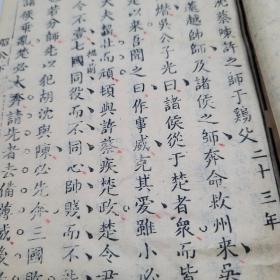 二十三年
沈蔡陳許之師于雞父
薳越帥師及諸侯之師奔命救州來吳
熸吳公子光曰諸侯從于楚者衆而皆
是以來吾聞之曰作事威克其愛雖小必
大夫齧壯而頑頓與許蔡疾楚政楚令尹
令不壹七國同役而不同心帥賤而不
若分師先以犯胡沈與陳必先奔三國敗
諸侯乖亂楚必大奔請先者去備薄威
昭公